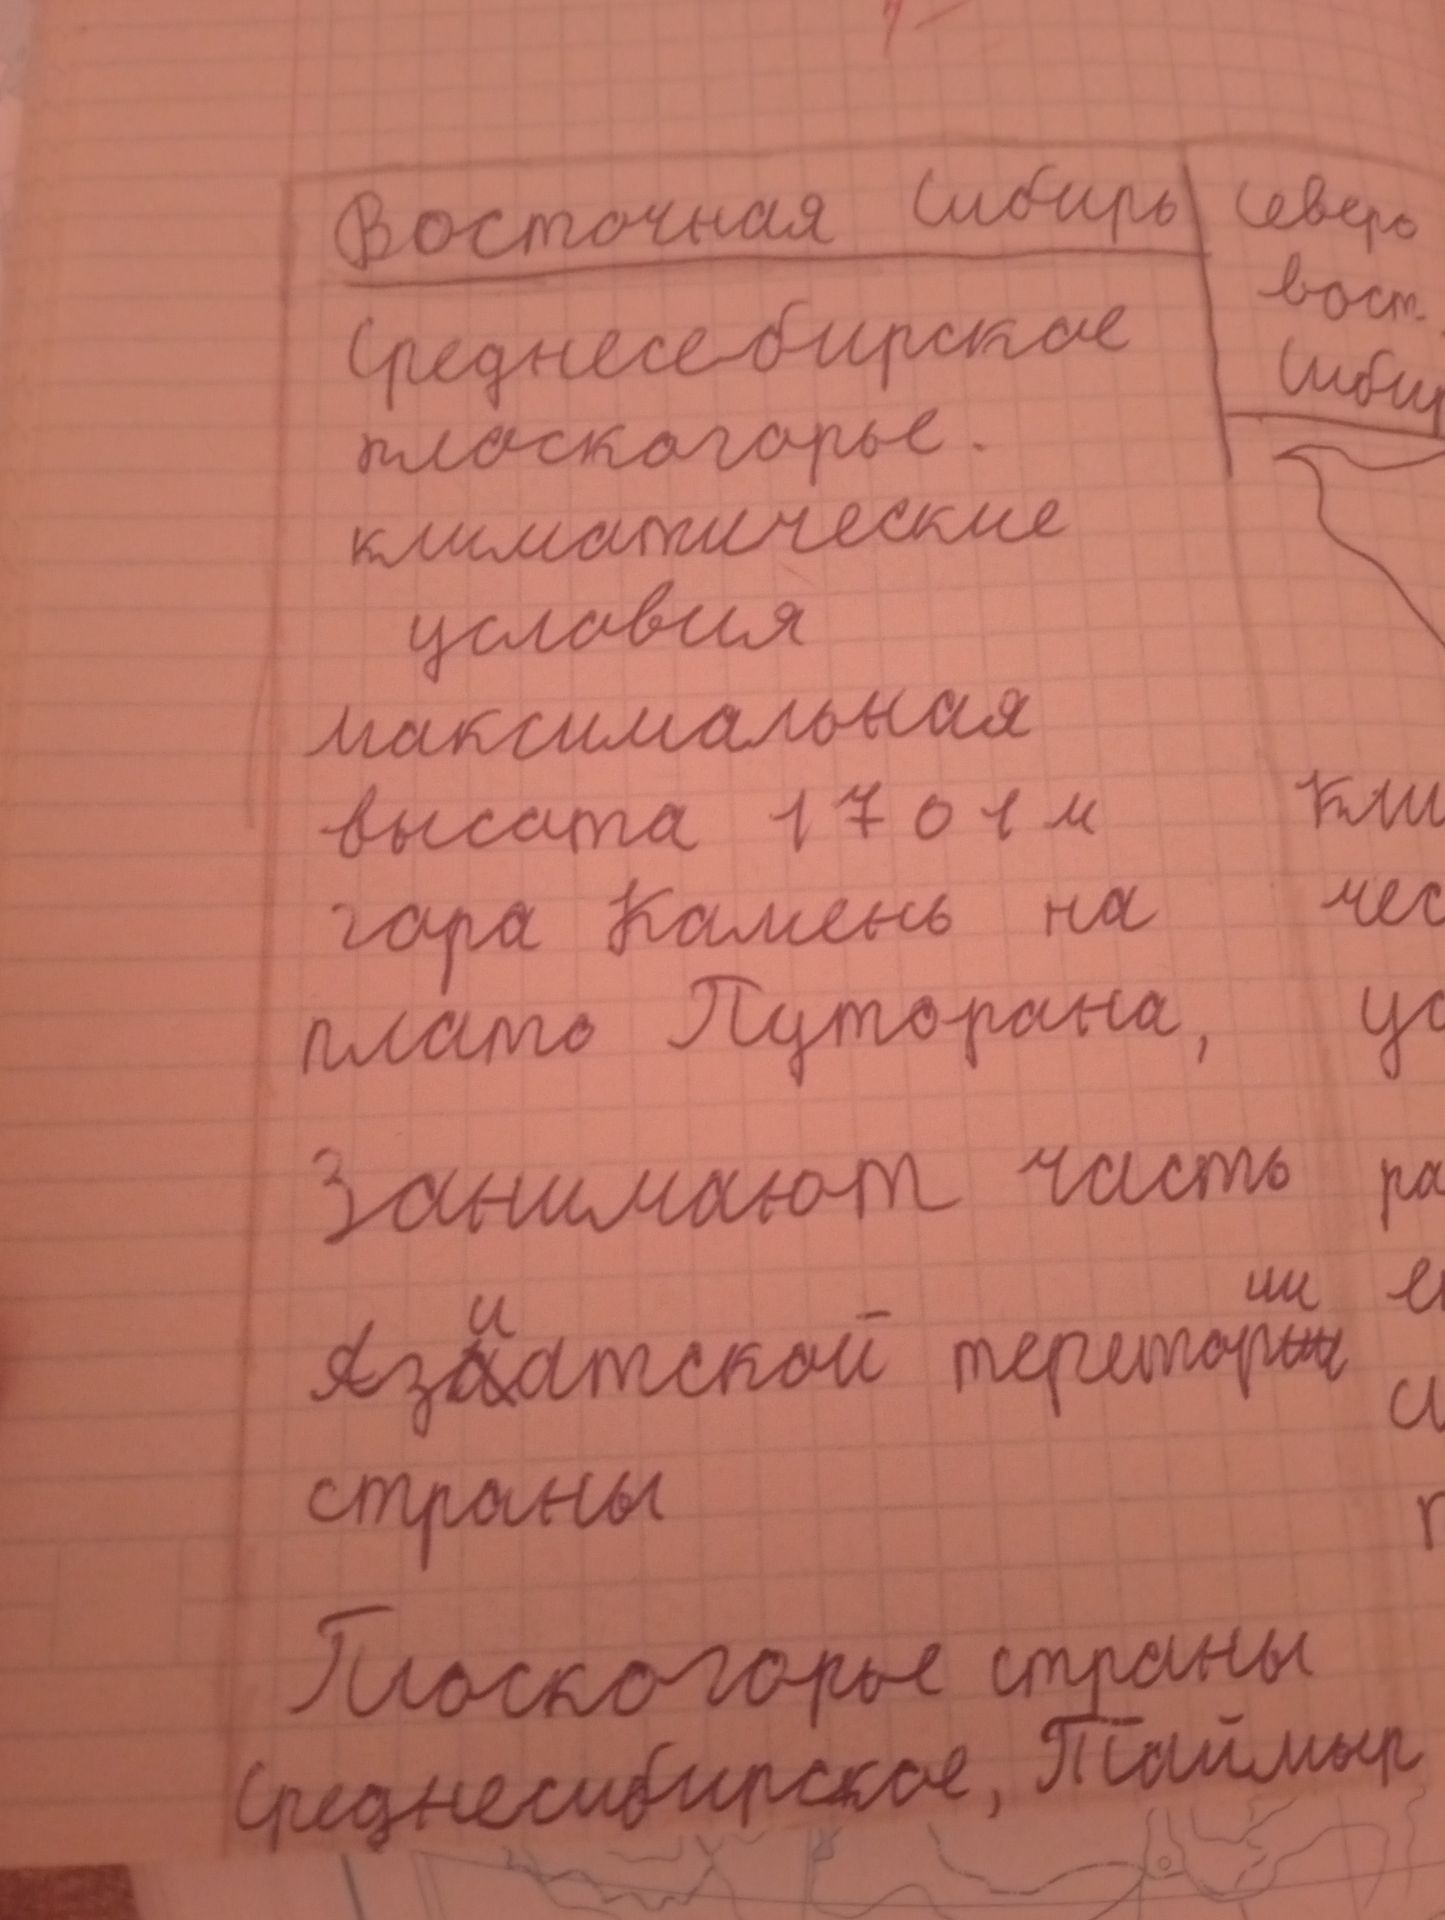 Восточная Сибирь
Среднесебирское
плоскогорье.
климатические
условия
максимальная
высата 1701м
гара Камень на
плато Путорана,
Занимают часть
Азиатской теретории
страны
Плоскогорье страны
Среднесибирское, Таймыр
Северо
вост.
Сибир
кли
чес
ус
ра